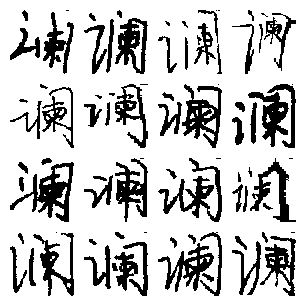 谰谰谰谰
谰谰谰谰
谰谰谰谰
谰谰谰谰